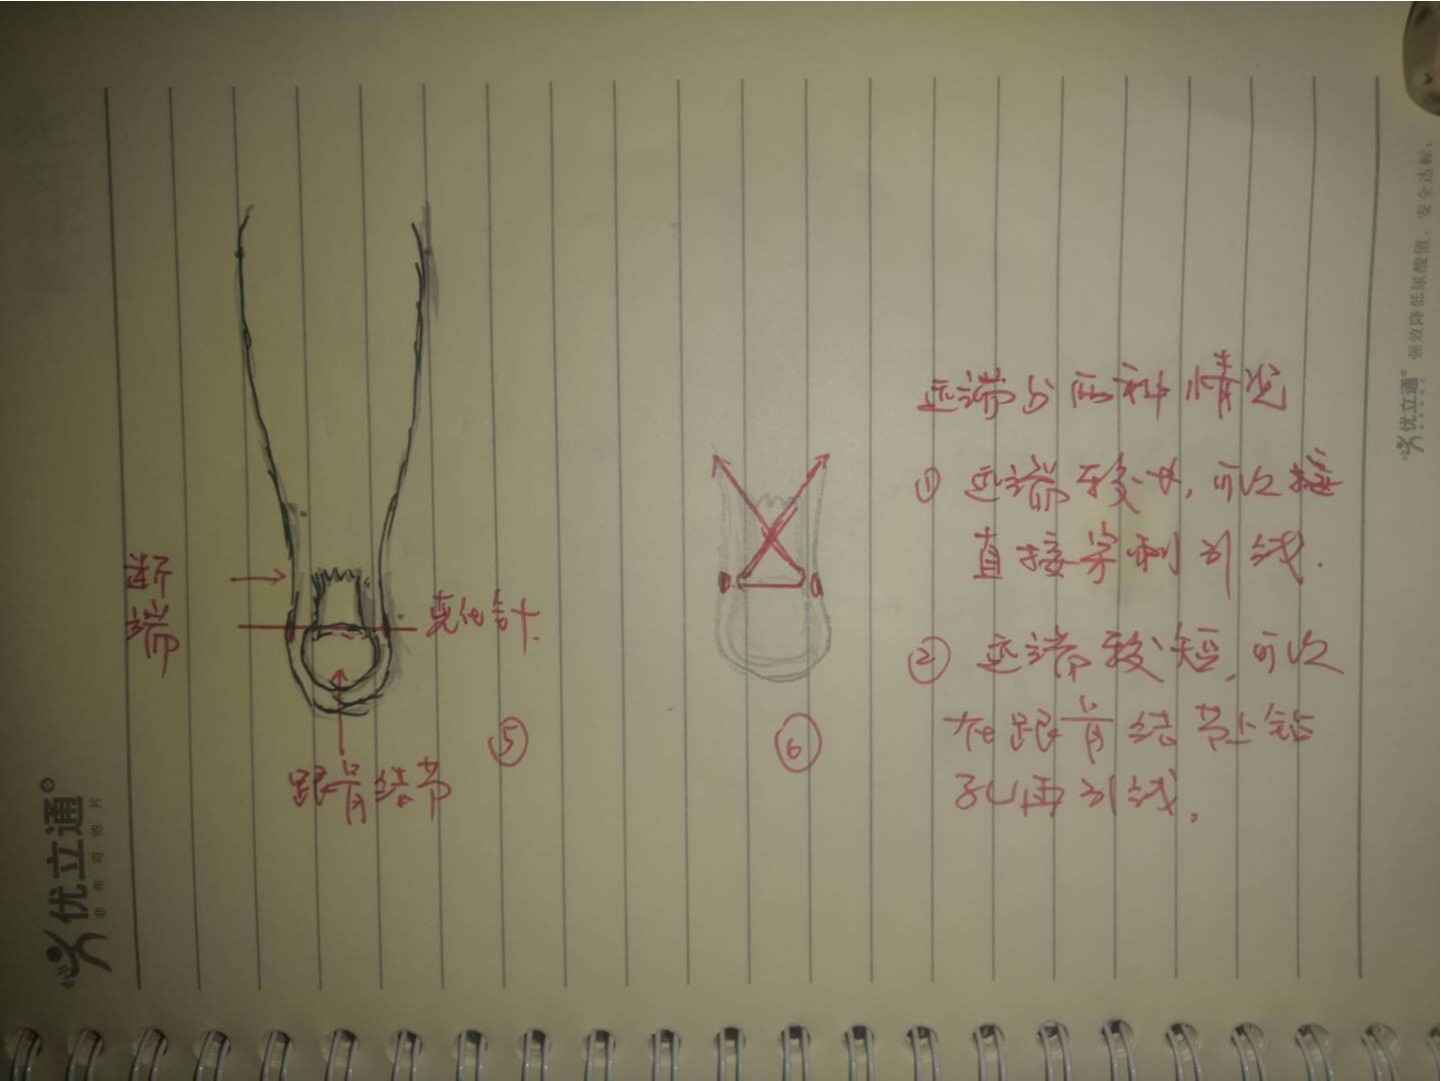 断端
克氏针
跟骨结节
⑤
⑥
远端分两种情况
① 远端较长,可以接
直接穿刺引线.
② 远端较短,可以
在跟骨结节上钻
孔再引线。
优立通®
优立通® 强效降低尿酸值,安全达标;